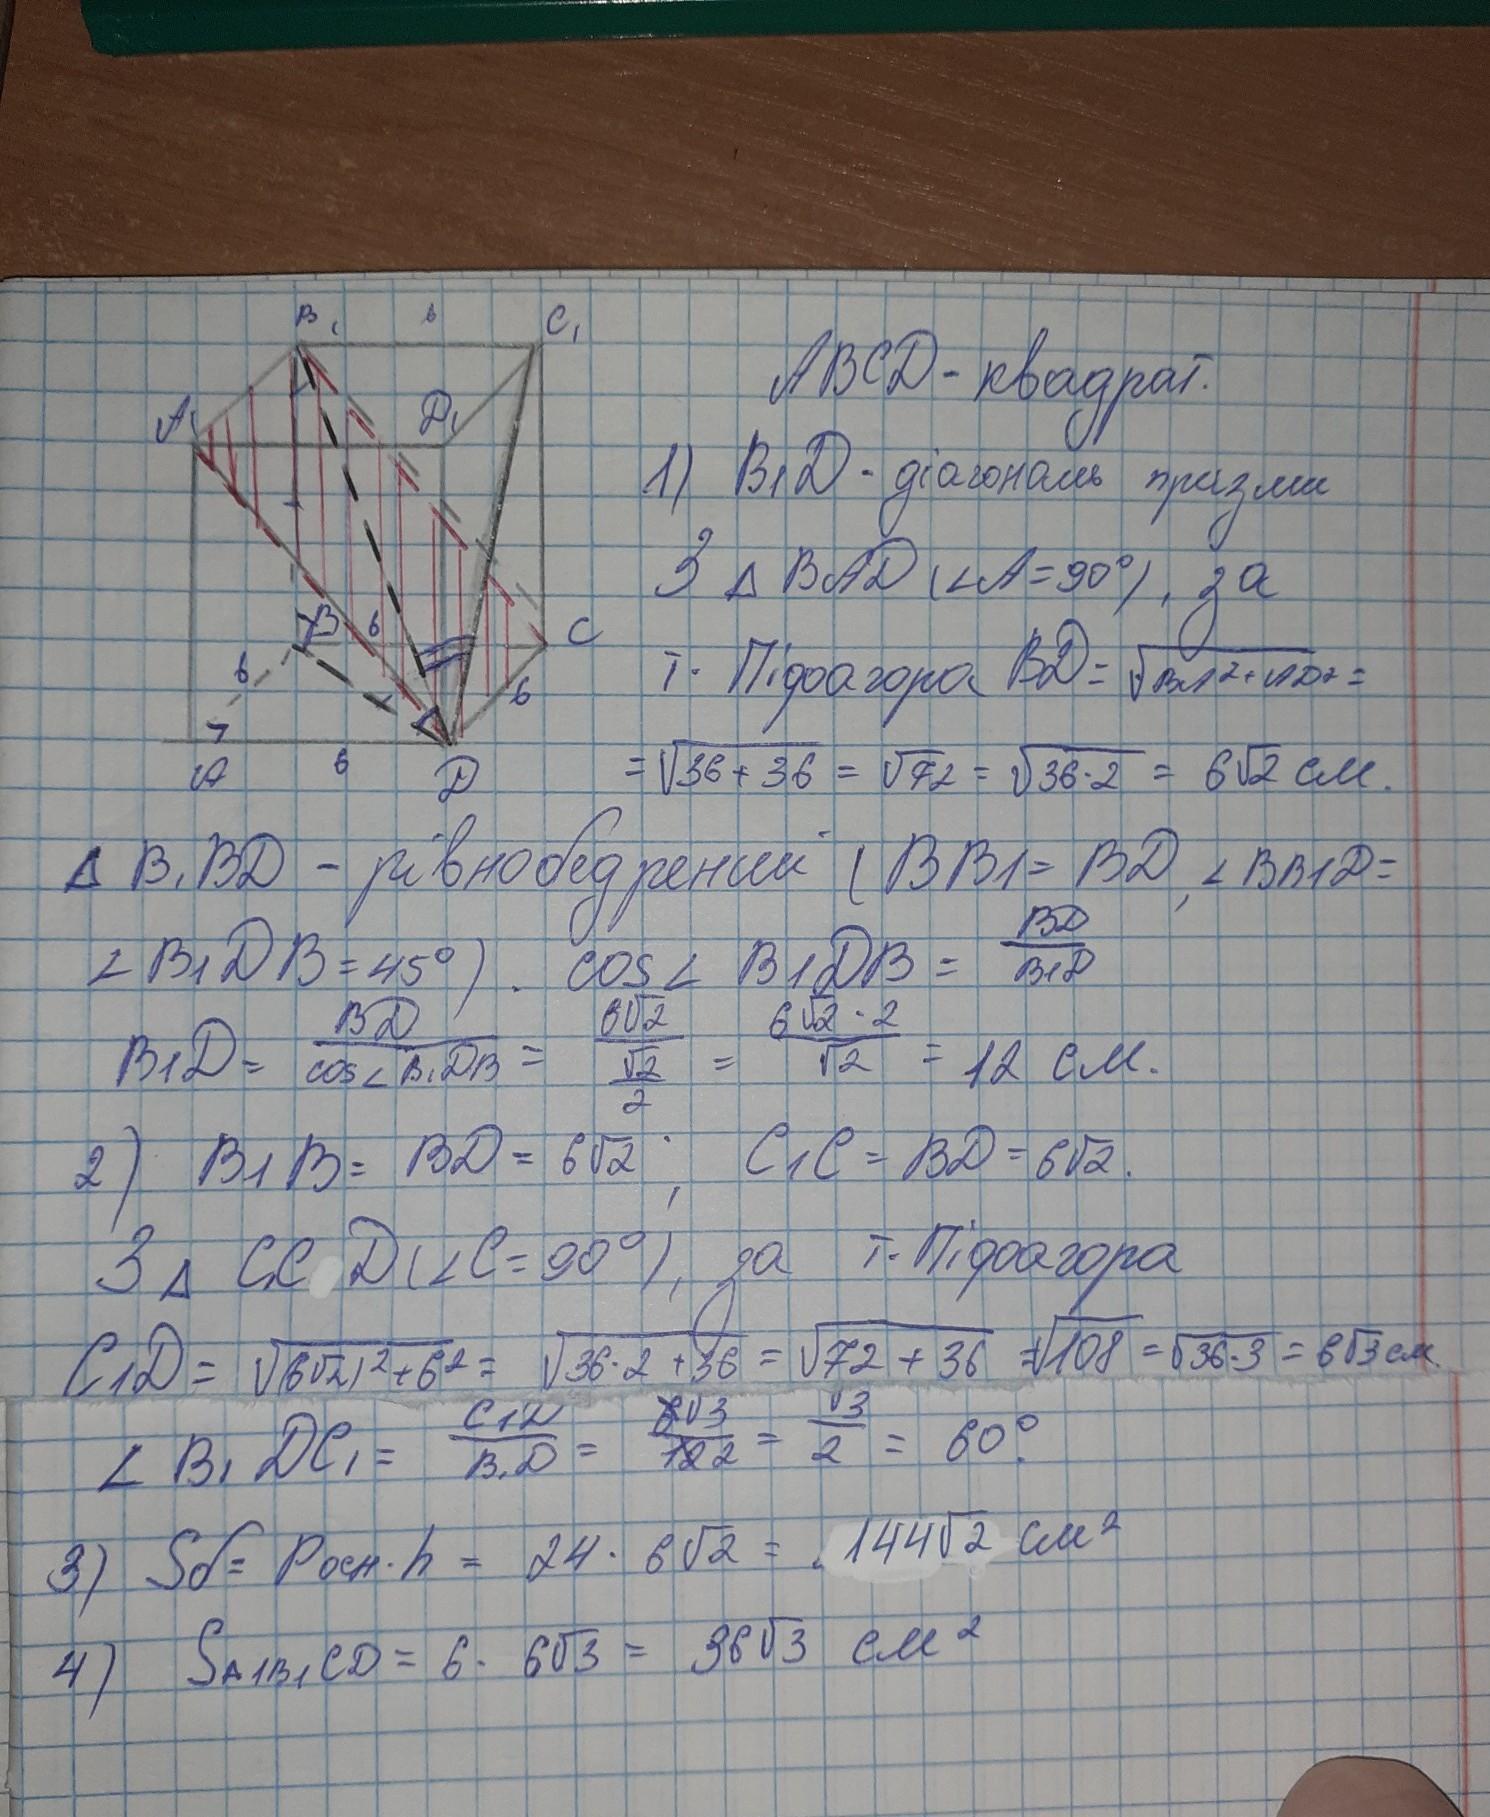 B₁ 6 C₁
A₁ D₁
B 6 C
6 6
A 6 D
ABCD - квадрат.
1) B1D - діагональ призми
З △ BAD (∠A = 90°), за
т. Піфагора BD = √BA² + AD² =
= √36 + 36 = √72 = √36·2 = 6√2 см.
△ B₁BD - рівнобедрений (BB1 = BD, ∠BB1D =
∠B1DB = 45°). cos∠ B1DB = BD/B1D
B1D = BD/cos∠B₁DB = 6√2/(√2/2) = 6√2·2/√2 = 12 см.
2) B1B = BD = 6√2 ; C1C = BD = 6√2.
З △ CC D (∠C = 90°), за т. Піфагора
C1D = √(6√2)² + 6² = √36·2 + 36 = √72 + 36 = √108 = √36·3 = 6√3 см.
∠ B₁DC₁ = C1D/B₁D = 6√3/12 2 = √3/2 = 60°.
3) Sб = Pосн·h = 24·6√2 = 144√2 см²
4) SA1B1CD = 6·6√3 = 36√3 см²